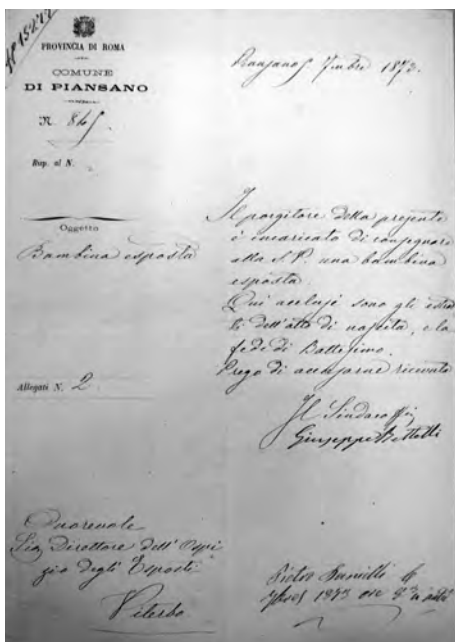 Nº 15277
PROVINCIA DI ROMA
COMUNE
DI PIANSANO
N. 845
Risp. al N.
Oggetto
Bambina esposta
Allegati N. 2
Piansano 7mbre 1873.
Il porgitore della presente
è incaricato di consegnare
alla S. V. una bambina
esposta.
Qui acclusi sono gli estrat
ti dell'atto di nascita, e la
fede di Battesimo.
Prego di accusarne ricevuta
Il Sindaco
Giuseppe
Onorevole
Sig. Direttore dell'Ospi
zio degli Esposti
Viterbo
Pietro
1873 ore